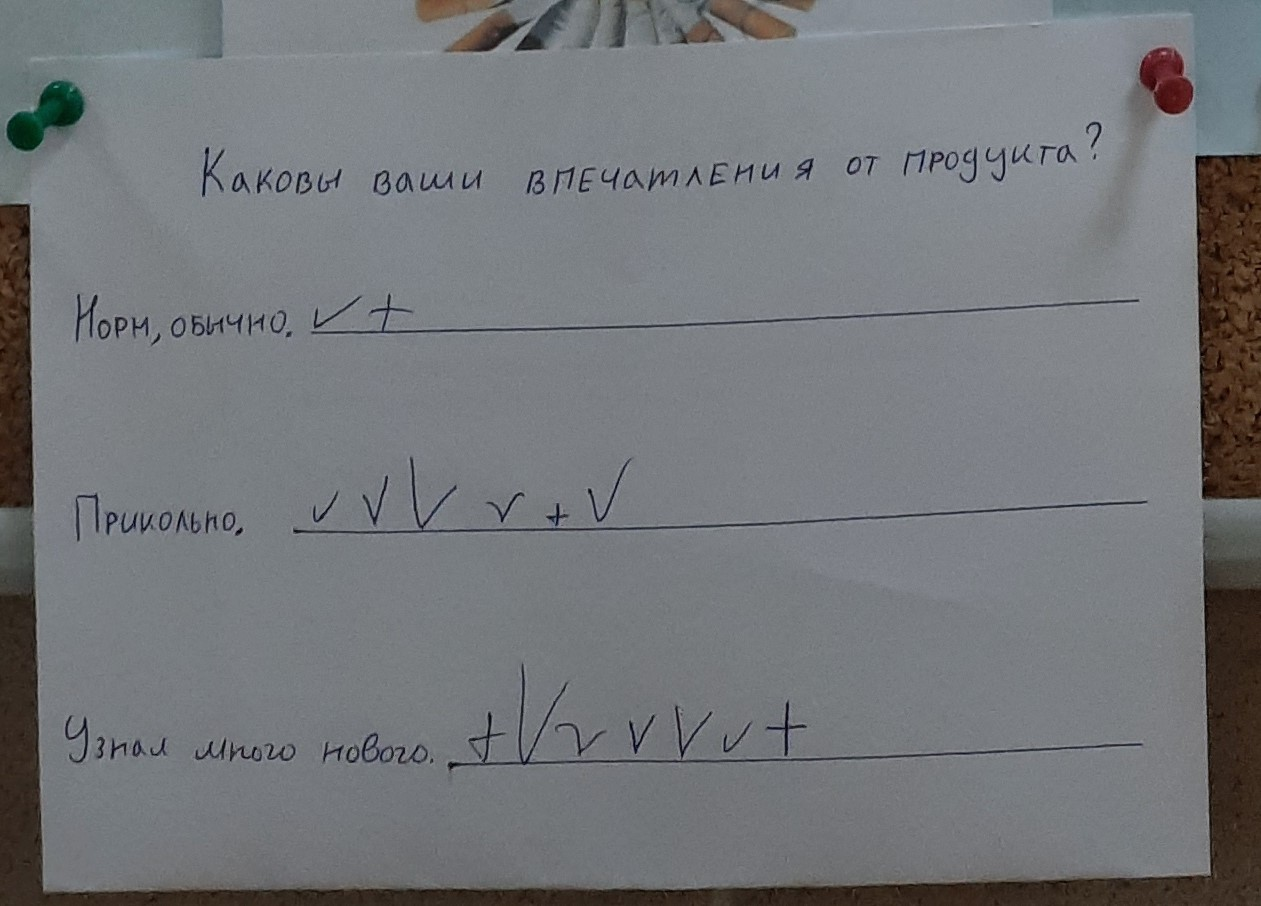 Каковы ваши впечатления от продукта?
Норм, обычно. ✓ +
Прикольно. ✓ ✓ ✓ ✓ + ✓
Узнал много нового. + ✓ ✓ ✓ ✓ ✓ +